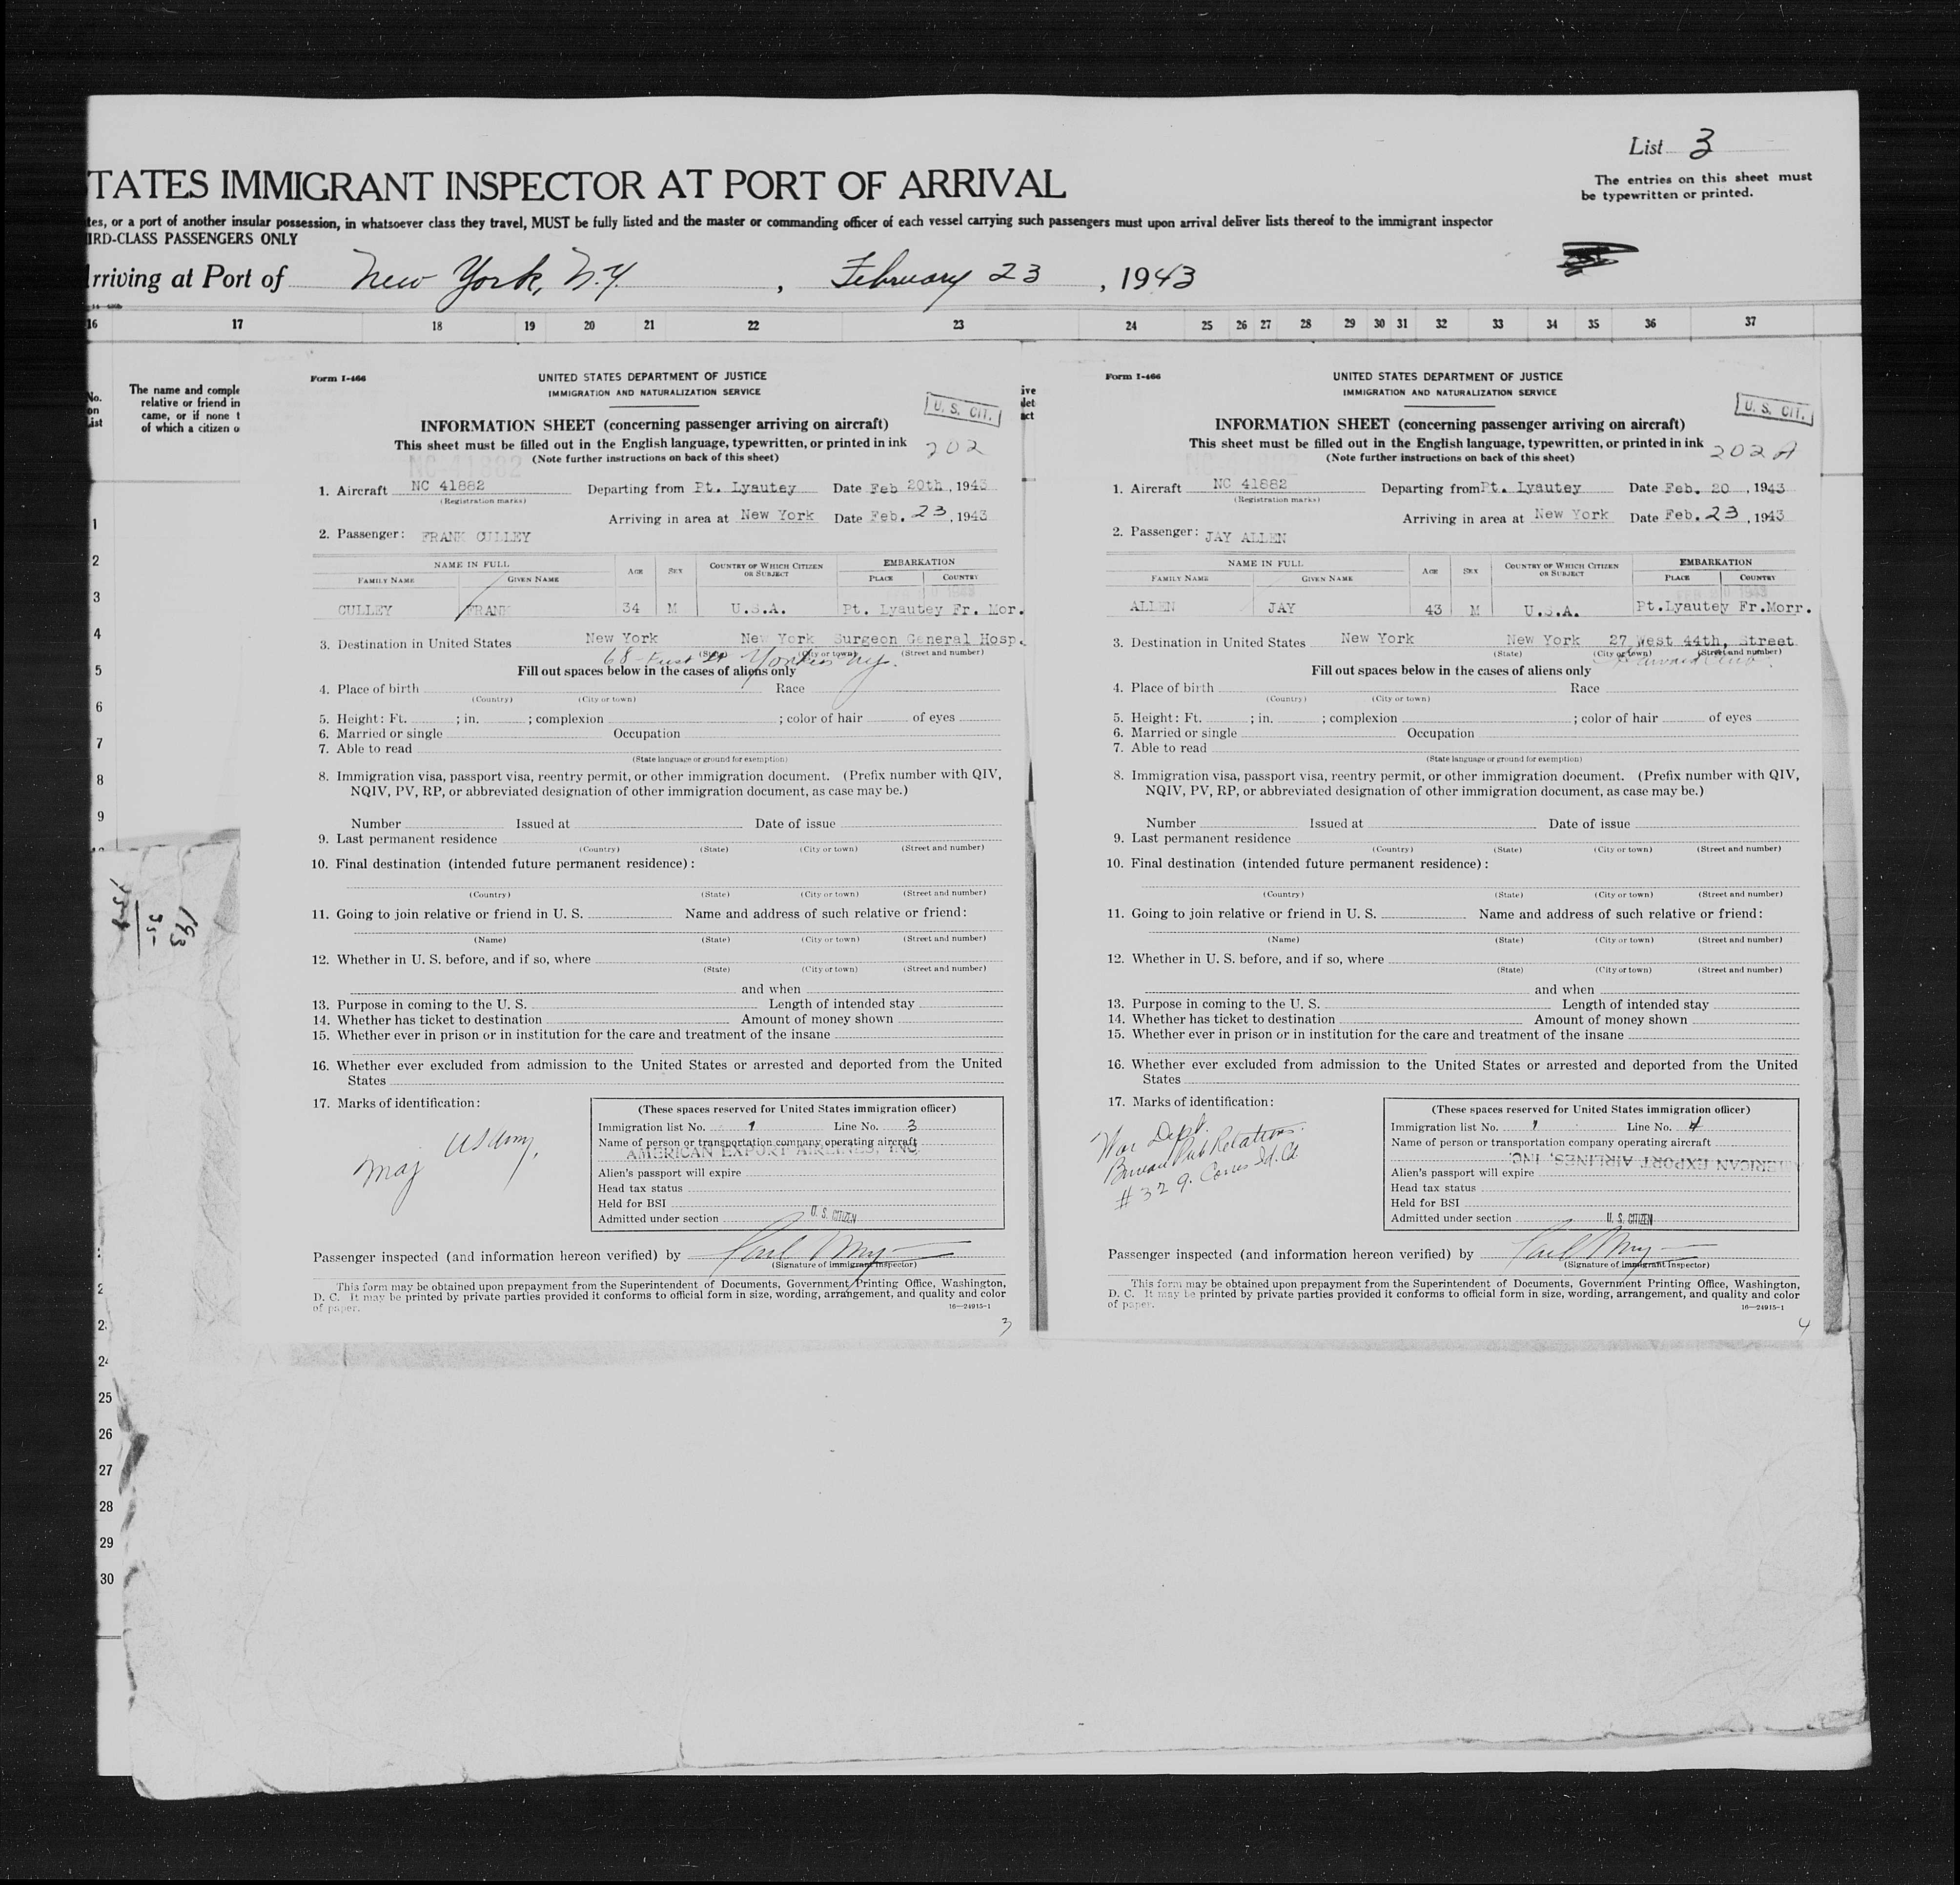 List 3
TATES IMMIGRANT INSPECTOR AT PORT OF ARRIVAL
The entries on this sheet must
be typewritten or printed.
tes, or a port of another insular possession, in whatsoever class they travel, MUST be fully listed and the master or commanding officer of each vessel carrying such passengers must upon arrival deliver lists thereof to the immigrant inspector
IRD-CLASS PASSENGERS ONLY
rriving at Port of New York, N.Y. , February 23 , 1943
16 17 18 19 20 21 22 23 24 25 26 27 28 29 30 31 32 33 34 35 36 37
No.
on
List
The name and comple
relative or friend in
came, or if none t
of which a citizen o
1
2
3
4
5
6
7
8
9
193
35
158
Form I-466
UNITED STATES DEPARTMENT OF JUSTICE
IMMIGRATION AND NATURALIZATION SERVICE
U. S. CIT.
INFORMATION SHEET (concerning passenger arriving on aircraft)
This sheet must be filled out in the English language, typewritten, or printed in ink
202
(Note further instructions on back of this sheet)
NC-41882
1. Aircraft NC 41882 Departing from Pt. Lyautey Date Feb 20th, 1943
(Registration marks)
Arriving in area at New York Date Feb. 23, 1943
2. Passenger: FRANK CULLEY
NAME IN FULL AGE SEX COUNTRY OF WHICH CITIZEN OR SUBJECT EMBARKATION
FAMILY NAME GIVEN NAME PLACE COUNTRY
CULLEY FRANK 34 M U.S.A. Pt. Lyautey Fr. Mor.
3. Destination in United States New York New York Surgeon General Hosp.
(State) (City or town) (Street and number)
68 Yonkers Ny.
Fill out spaces below in the cases of aliens only
4. Place of birth Race
(Country) (City or town)
5. Height: Ft. ; in. ; complexion ; color of hair of eyes
6. Married or single Occupation
7. Able to read
(State language or ground for exemption)
8. Immigration visa, passport visa, reentry permit, or other immigration document. (Prefix number with QIV,
NQIV, PV, RP, or abbreviated designation of other immigration document, as case may be.)
Number Issued at Date of issue
9. Last permanent residence
(Country) (State) (City or town) (Street and number)
10. Final destination (intended future permanent residence):
(Country) (State) (City or town) (Street and number)
11. Going to join relative or friend in U. S. Name and address of such relative or friend:
(Name) (State) (City or town) (Street and number)
12. Whether in U. S. before, and if so, where
(State) (City or town) (Street and number)
and when
13. Purpose in coming to the U. S. Length of intended stay
14. Whether has ticket to destination Amount of money shown
15. Whether ever in prison or in institution for the care and treatment of the insane
16. Whether ever excluded from admission to the United States or arrested and deported from the United
States
17. Marks of identification:
Maj US Army.
(These spaces reserved for United States immigration officer)
Immigration list No. 1 Line No. 3
Name of person or transportation company operating aircraft
AMERICAN EXPORT AIRLINES, INC.
Alien's passport will expire
Head tax status
Held for BSI
Admitted under section U. S. CITIZEN
Passenger inspected (and information hereon verified) by
(Signature of immigrant inspector)
This form may be obtained upon prepayment from the Superintendent of Documents, Government Printing Office, Washington,
D. C. It may be printed by private parties provided it conforms to official form in size, wording, arrangement, and quality and color
of paper.
16—24915-1
3
ive
let
act
Form I-466
UNITED STATES DEPARTMENT OF JUSTICE
IMMIGRATION AND NATURALIZATION SERVICE
U. S. CIT.
INFORMATION SHEET (concerning passenger arriving on aircraft)
This sheet must be filled out in the English language, typewritten, or printed in ink
202 A
(Note further instructions on back of this sheet)
1. Aircraft NC 41882 Departing from Pt. Lyautey Date Feb. 20, 1943
(Registration marks)
Arriving in area at New York Date Feb. 23, 1943
2. Passenger: JAY ALLEN
NAME IN FULL AGE SEX COUNTRY OF WHICH CITIZEN OR SUBJECT EMBARKATION
FAMILY NAME GIVEN NAME PLACE COUNTRY
ALLEN JAY 43 M U.S.A. Pt.Lyautey Fr.Morr.
3. Destination in United States New York New York 27 West 44th, Street
(State) (City or town) (Street and number)
Harvard Club
Fill out spaces below in the cases of aliens only
4. Place of birth Race
(Country) (City or town)
5. Height: Ft. ; in. ; complexion ; color of hair of eyes
6. Married or single Occupation
7. Able to read
(State language or ground for exemption)
8. Immigration visa, passport visa, reentry permit, or other immigration document. (Prefix number with QIV,
NQIV, PV, RP, or abbreviated designation of other immigration document, as case may be.)
Number Issued at Date of issue
9. Last permanent residence
(Country) (State) (City or town) (Street and number)
10. Final destination (intended future permanent residence):
(Country) (State) (City or town) (Street and number)
11. Going to join relative or friend in U. S. Name and address of such relative or friend:
(Name) (State) (City or town) (Street and number)
12. Whether in U. S. before, and if so, where
(State) (City or town) (Street and number)
and when
13. Purpose in coming to the U. S. Length of intended stay
14. Whether has ticket to destination Amount of money shown
15. Whether ever in prison or in institution for the care and treatment of the insane
16. Whether ever excluded from admission to the United States or arrested and deported from the United
States
17. Marks of identification:
War Dept.
Bureau Pub Relations.
#329. Corres Id. Cd
(These spaces reserved for United States immigration officer)
Immigration list No. 1 Line No. 4
Name of person or transportation company operating aircraft
AMERICAN EXPORT AIRLINES, INC.
Alien's passport will expire
Head tax status
Held for BSI
Admitted under section U. S. CITIZEN
Passenger inspected (and information hereon verified) by
(Signature of immigrant inspector)
This form may be obtained upon prepayment from the Superintendent of Documents, Government Printing Office, Washington,
D. C. It may be printed by private parties provided it conforms to official form in size, wording, arrangement, and quality and color
of paper.
16—24915-1
4
24
25
26
27
28
29
30